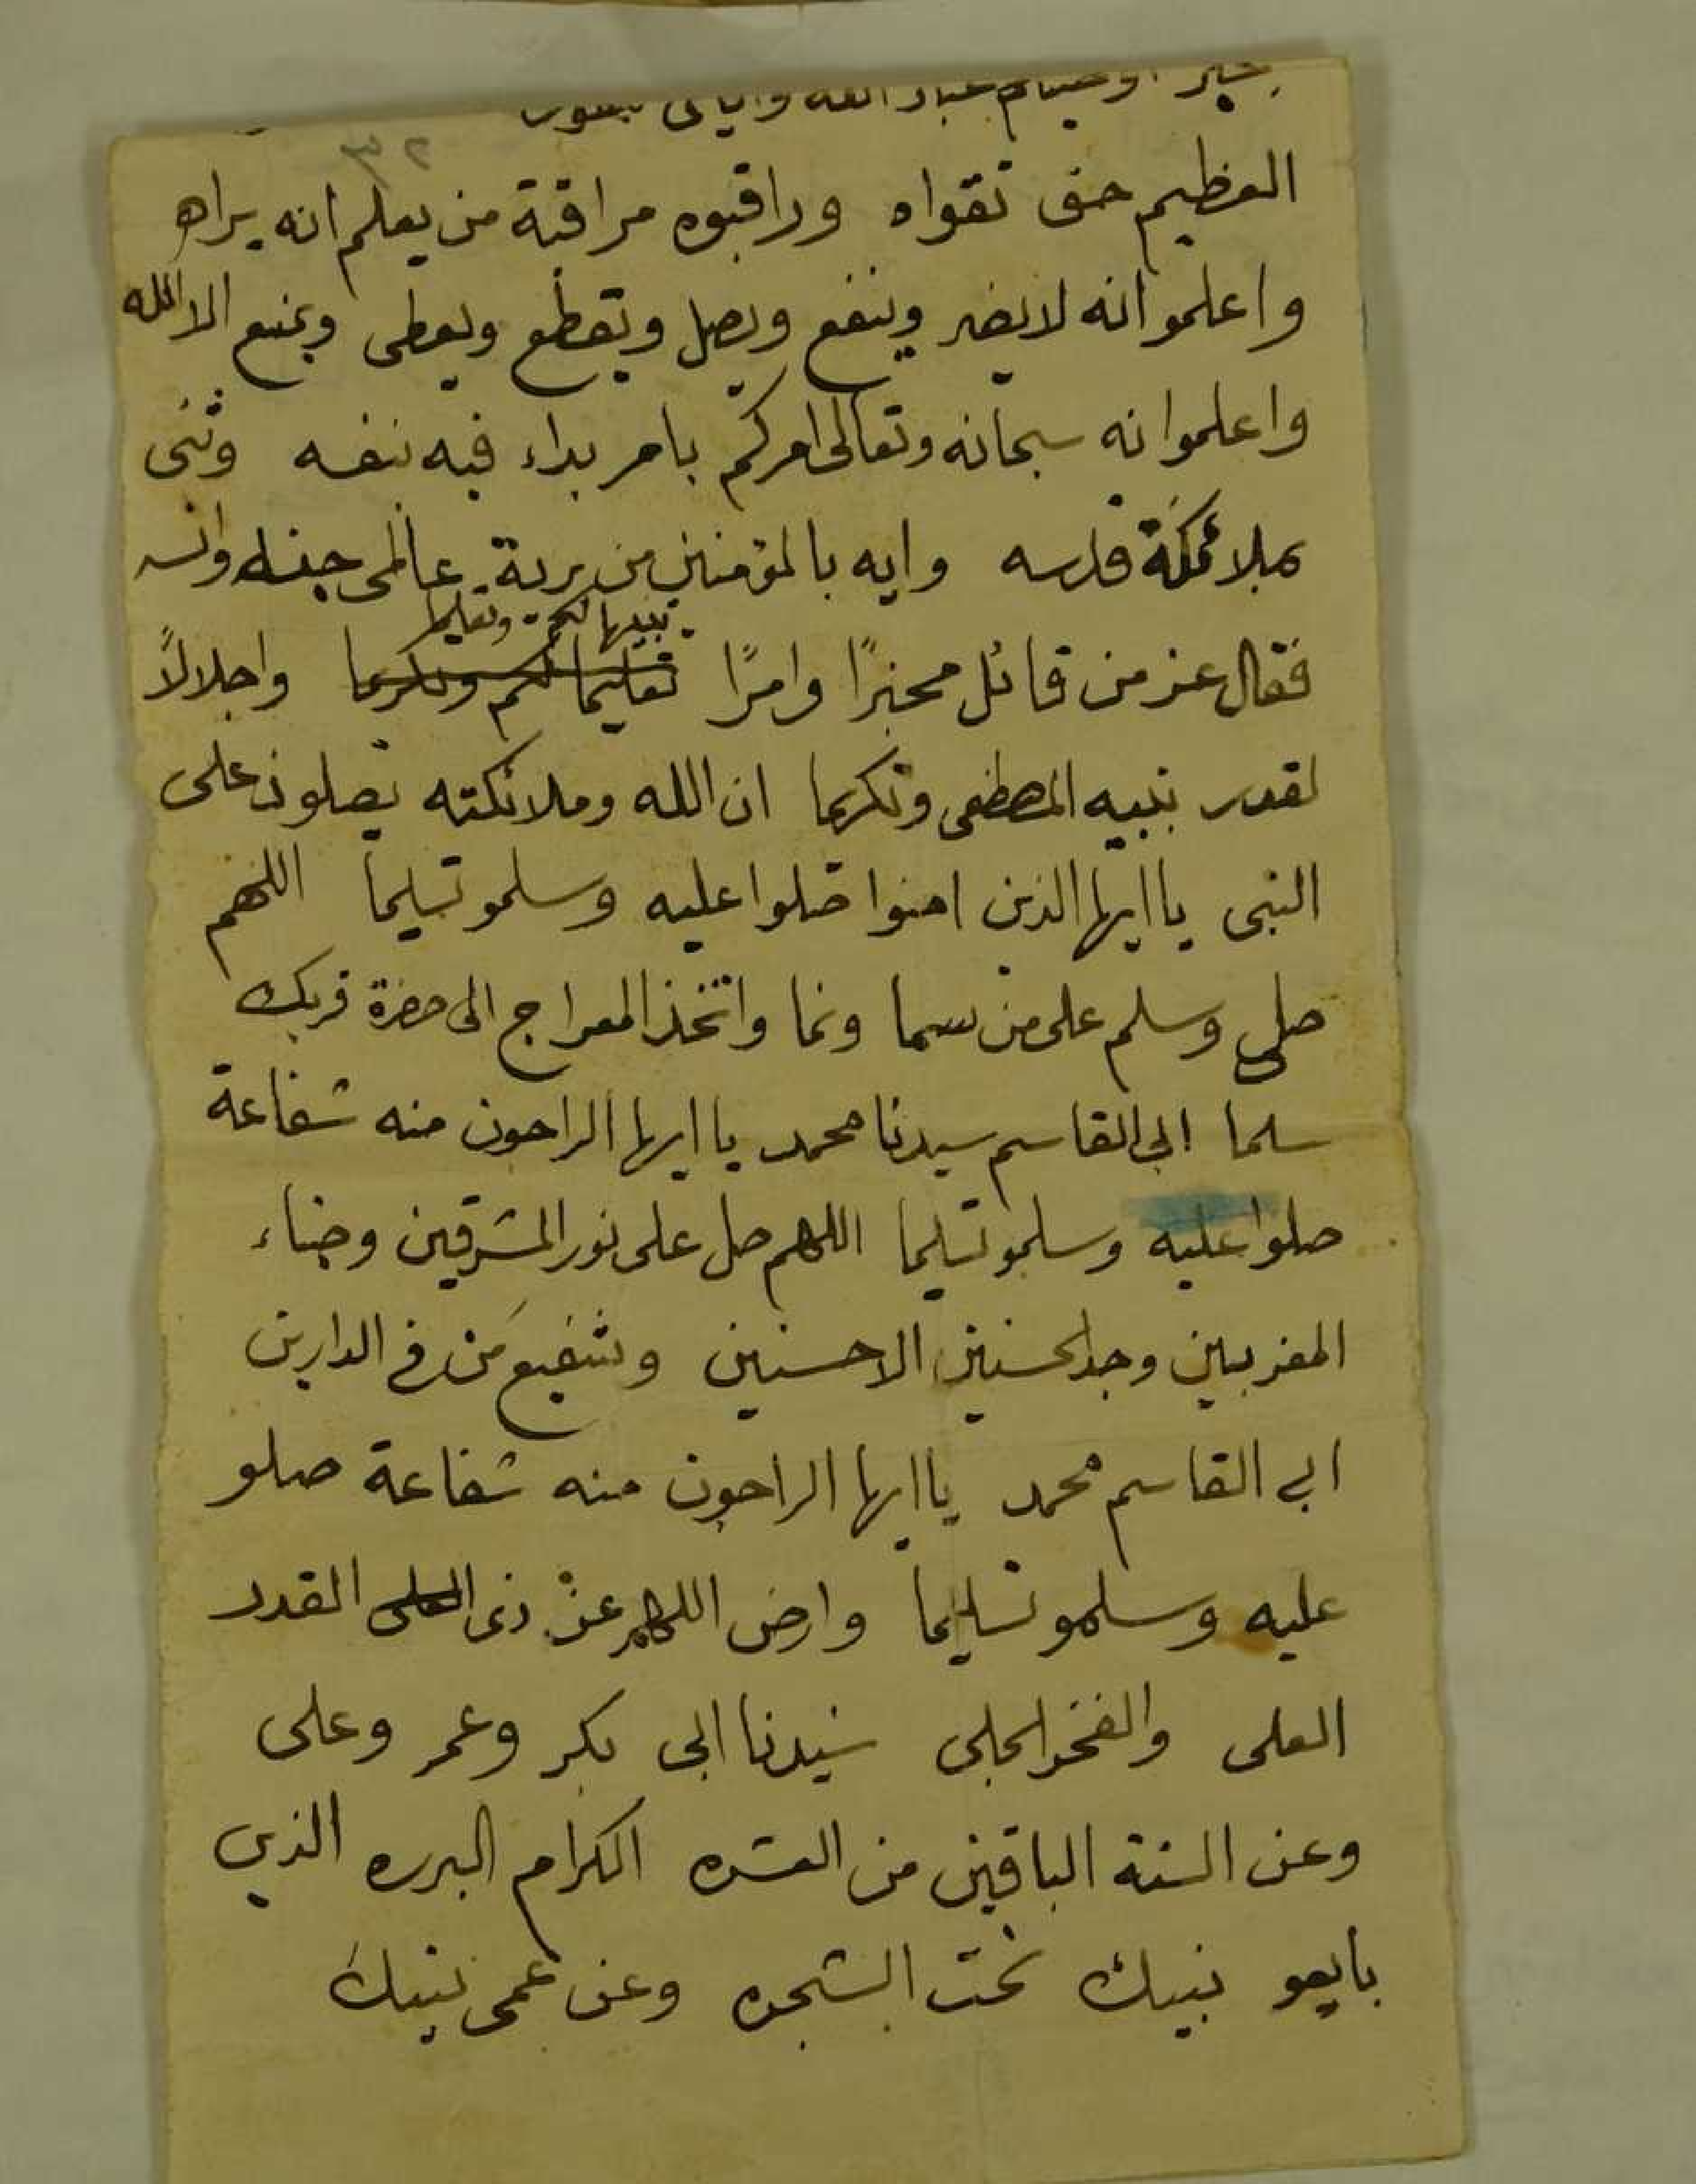 اوصيكم عباد الله واياى بتقوى
٣٢
العظيم حق تقواه وراقبوه مراقبة من يعلم انه يراه
واعلموا انه لا يضر وينفع ويصل ويقطع ويعطى ويمنع الا الله
واعلموا نه سبحانه وتعالى امركم بامر بداء فيه بنفسه وثنى
بملائكة قدسه وايه بالمؤمنين من برية عالمى جنه وانسه
تنبيها لكم وتعليما
فقال عز من قائل مخبرًا وامرًا تعليما لكم وتكريما واجلالاً
لقدر نبيه المصطفى وتكريما ان الله وملائكته يصلون على
النبى يا ايها الذين امنوا صلوا عليه وسلمو تسليما اللهم
صلى وسلم على من سما ونما واتخذ المعراج الى حضرة قربك
سلما ابى القاسم سيدنا محمد يا ايها الراجون منه شفاعة
صلوا عليه وسلمو تسليما اللهم صل على نور المشرقين وضياء
المغربين وجد الحسنين الاحسنين وشفيع من فى الدارين
ابى القاسم محمد يا ايها الراجون منه شفاعة صلو
عليه وسلمو تسليما وارض اللهم عن ذى العلى القدر
العلى والفخر الجلى سيدنا ابى بكر وعمر وعلى
وعن الستة الباقين من العشره الكرام البرره الذي
بايعو نبيك تحت الشجره وعن عمى نبيك